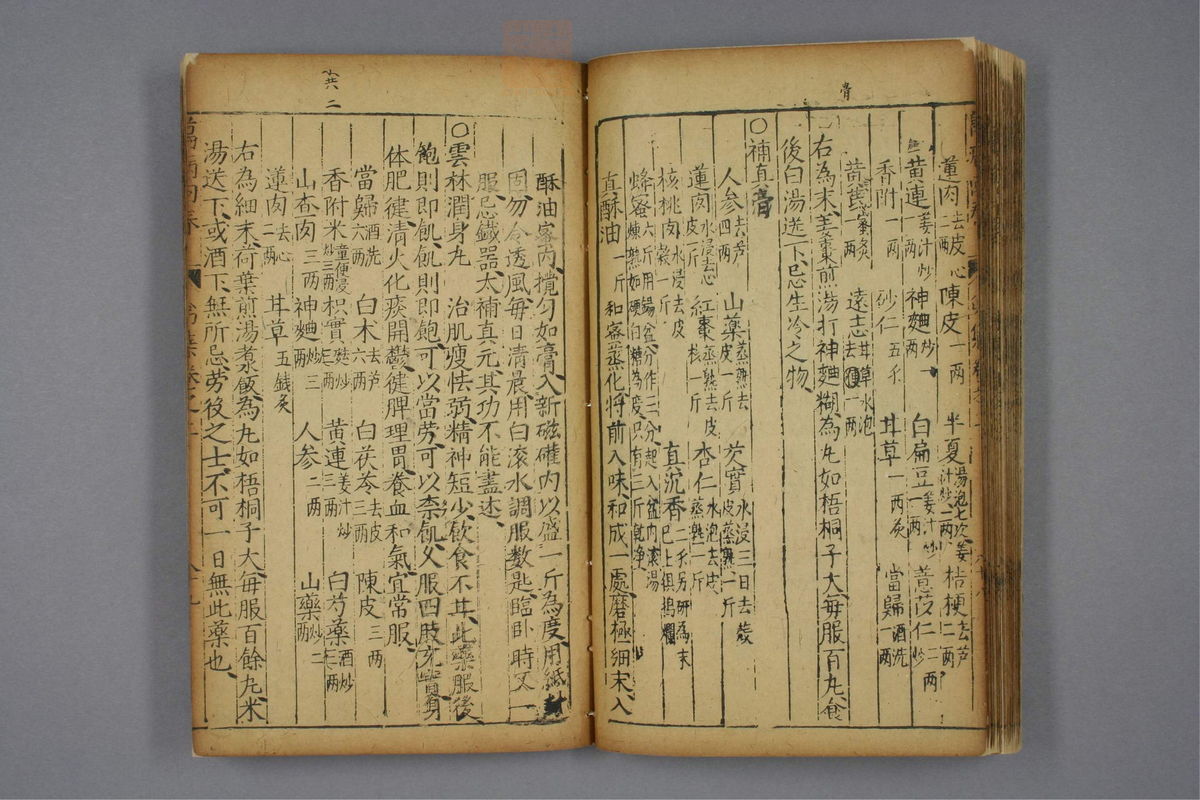 蓮肉去皮心二兩 陳皮一兩 半夏湯泡七次姜汁炒一兩 桔梗去芦二兩
黃連姜汁炒一兩 神麯炒一兩 白扁豆姜汁炒一兩 薏苡仁炒二兩
香附一兩 砂仁五錢 甘草一兩炙 當歸一兩酒洗
黃蓍蜜炙一兩 遠志甘草水泡去一兩
右為末姜棗煎湯打神麯糊為丸如梧桐子大每服百丸食
後白湯送下忌生冷之物
〇補真膏
人參去芦四兩 山藥蒸熟去皮一斤 芡實水浸三日去殼皮蒸熟一斤
蓮肉水浸去心皮一斤 紅棗蒸熟去皮核一斤 杏仁水泡去皮蒸熟一斤
核桃肉水浸去皮殼一斤 真沉香二錢另研為末已上俱搗爛
蜂蜜六斤用錫盆分作三分起入盆內滾湯煉熟如硬白糖為度只有三斤乾淨
真酥油一斤和蜜蒸化將前入味和成一處磨極細末入
酥油蜜內攪勻如膏入新磁礶內以盛一斤為度用紙封
固勿令透風每日清晨用白滾水調服數匙臨卧時又一
服忌鐵器大補真元其功不能盡述
〇雲林潤身丸 治肌瘦怯弱精神短少飲食不甘此藥服後
飽則即飢飢則即飽可以當勞可以禁飢久服四肢充實身
体肥健清火化痰開鬱健脾理胃養血和氣宜常服
當歸酒洗六兩 白木去芦六兩 白茯苓去皮三兩 陳皮三兩
香附米童便浸炒三兩 枳實麩炒三兩 黃連姜汁炒三兩 白芍藥酒炒三兩
山查肉三兩 神麯炒三兩 人參二兩 山藥炒二兩
蓮肉去心二兩 甘草五錢炙
右為細末荷葉煎湯煮飯為丸如梧桐子大每服百餘丸米
湯送下或酒下無所忌勞役之士不可一日無此藥也